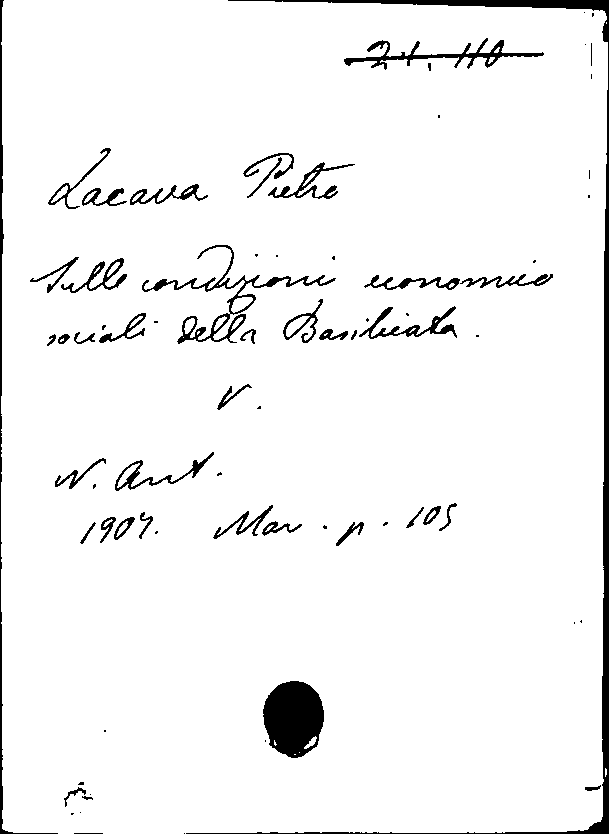 21. 110
Lacava Pietro
Sulle condizioni economico
sociali della Basilicata.
V.
N. Ant.
1907. Mar. p. 105